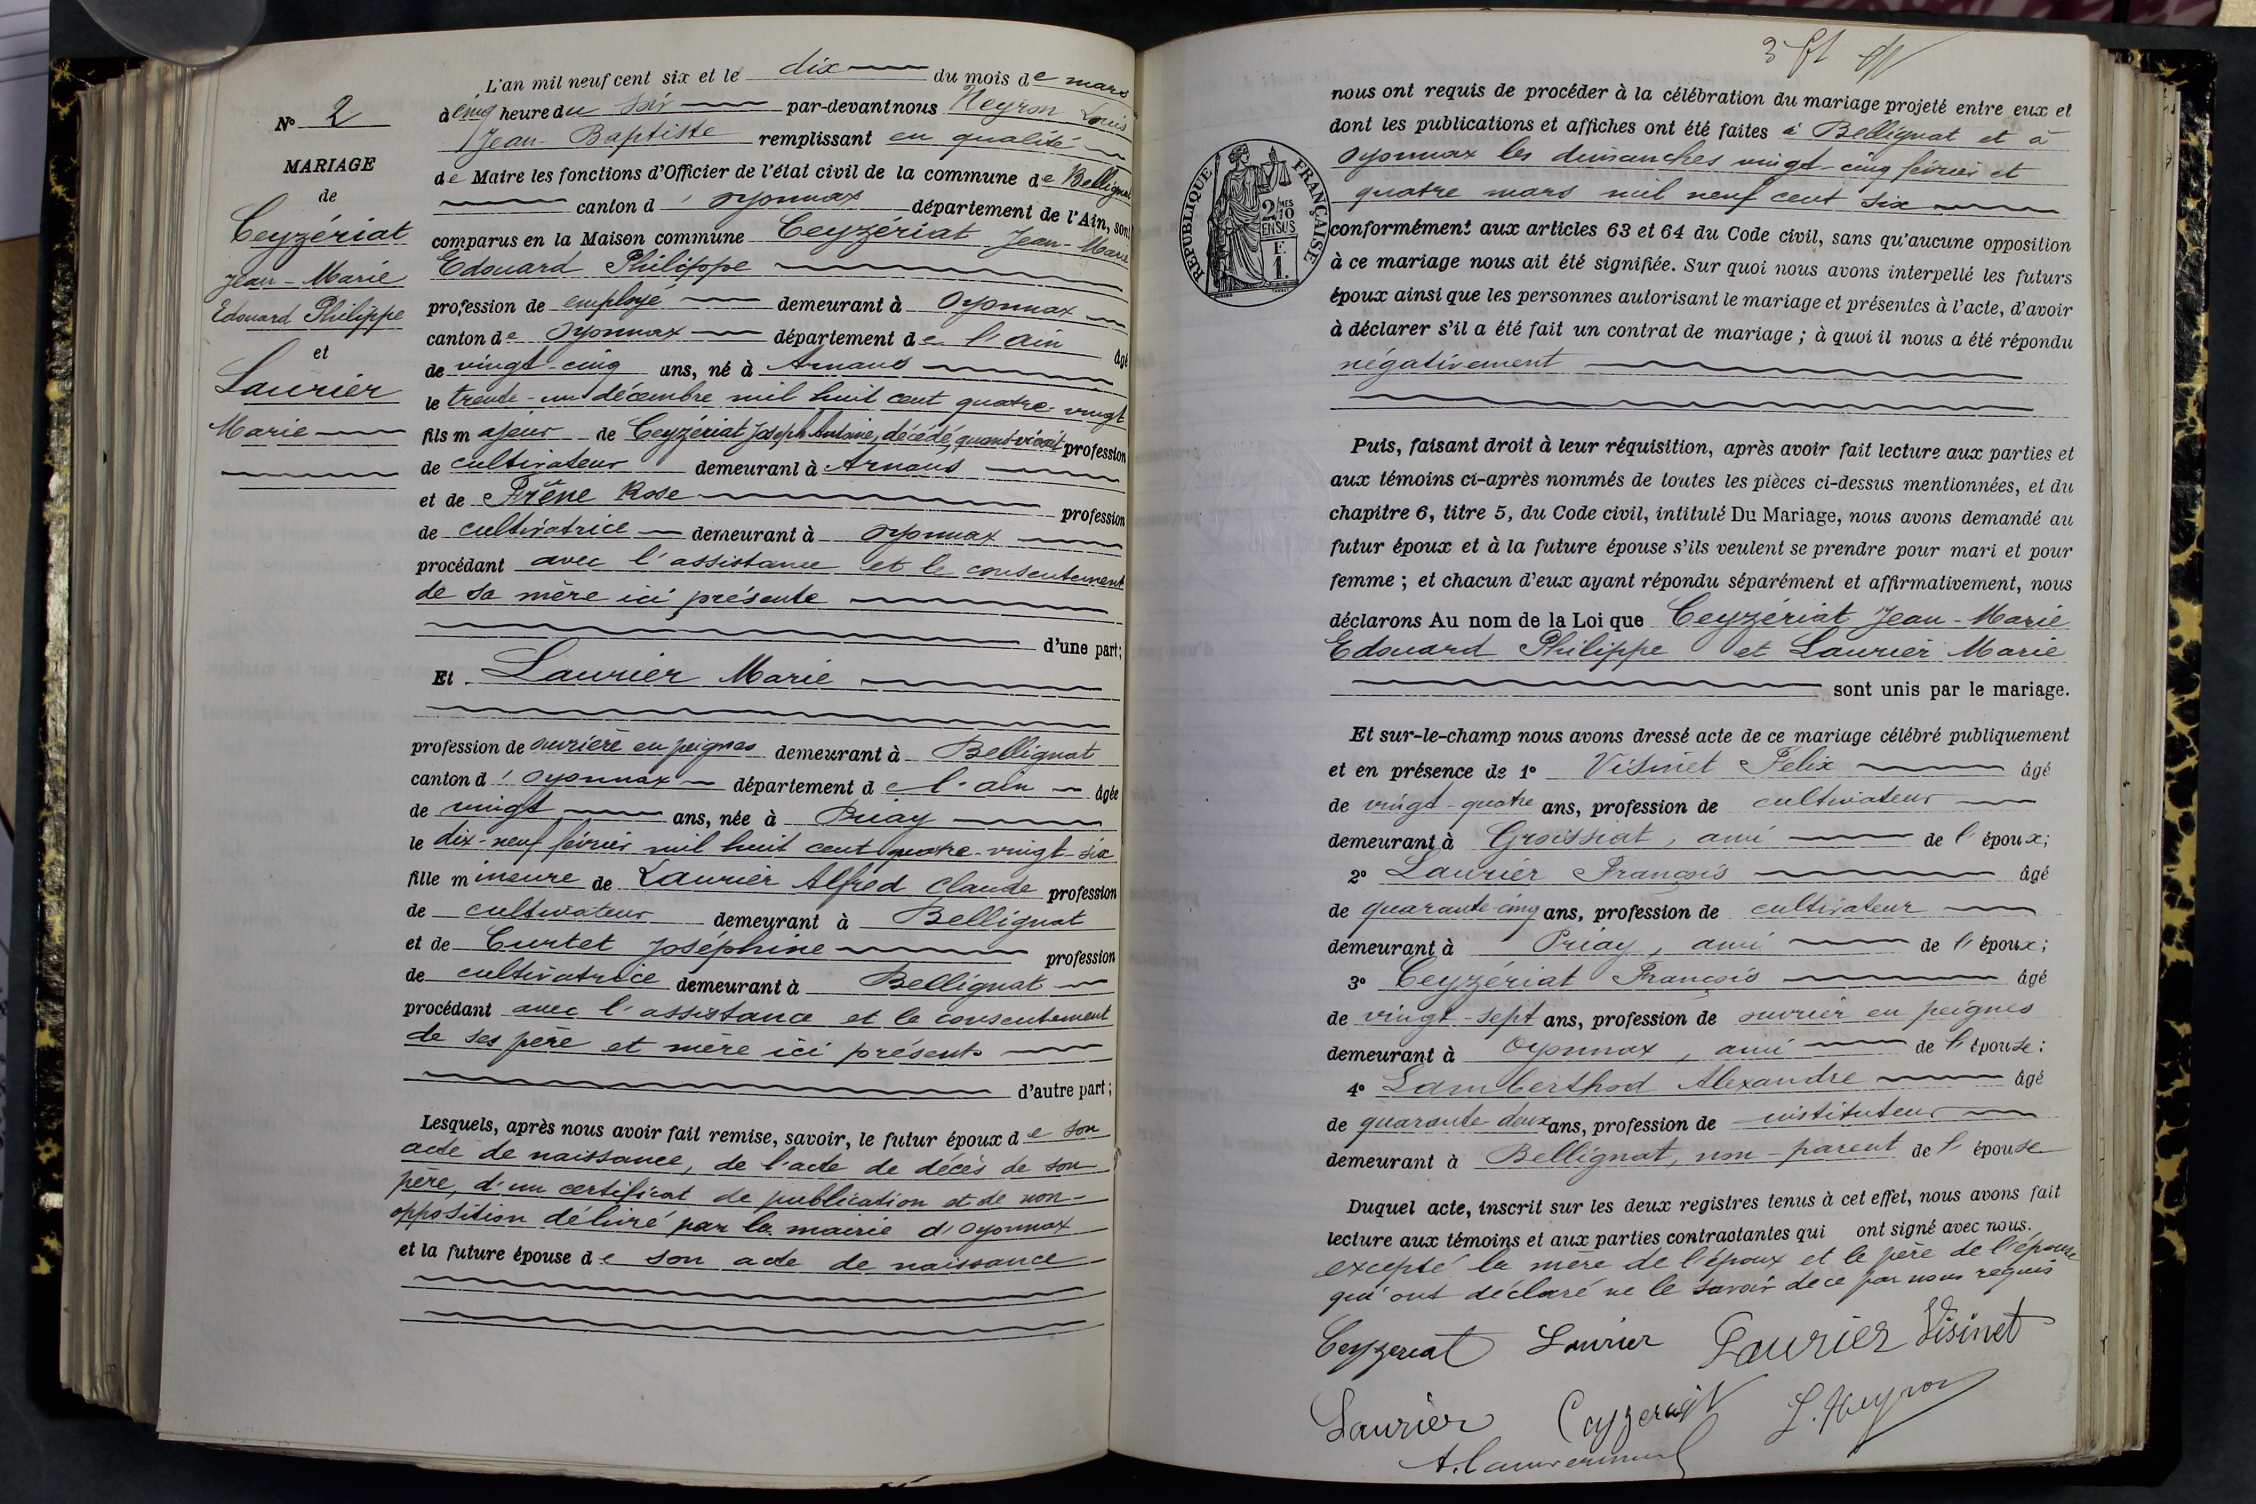 N° 2
MARIAGE
de
Ceyzériat
Jean-Marie
Edouard Philippe
et
Laurier
Marie
L'an mil neuf cent six et le dix du mois de mars
à cinq heure du soir par-devant nous Neyron Louis
Jean-Baptiste remplissant en qualité
de Maire les fonctions d'Officier de l'état civil de la commune de Bellignat
canton d'oyonnax département de l'Ain, sont
comparus en la Maison commune Ceyzériat Jean-Marie
Edouard Philippe
profession de employé demeurant à oyonnax
canton de oyonnax département de l'ain âgé
de vingt-cinq ans, né à Arnans
le trente-un décembre mil huit cent quatre-vingt
fils majeur de Ceyzériat Joseph Antoine, décédé, quand vivait profession
de cultivateur demeurant à Arnans
et de Frêne Rose profession
de cultivatrice demeurant à oyonnax
procédant avec l'assistance et le consentement
de sa mère ici présente
d'une part;
Et Laurier Marie
profession de ouvrière en peignes demeurant à Bellignat
canton d'oyonnax département de l'ain âgée
de vingt ans, née à Priay
le dix-neuf février mil huit cent quatre-vingt-six
fille mineure de Laurier Alfred Claude profession
de cultivateur demeurant à Bellignat
et de Curtet Joséphine profession
de cultivatrice demeurant à Bellignat
procédant avec l'assistance et le consentement
de ses père et mère ici présents
d'autre part;
Lesquels, après nous avoir fait remise, savoir, le futur époux de son
acte de naissance, de l'acte de décès de son
père, d'un certificat de publication et de non-
opposition délivré par la mairie d'oyonnax
et la future épouse de son acte de naissance
nous ont requis de procéder à la célébration du mariage projeté entre eux et
dont les publications et affiches ont été faites à Bellignat et à
oyonnax les dimanches vingt-cinq février et
quatre mars mil neuf cent six
RÉPUBLIQUE FRANÇAISE
2/10MES
EN SUS
F
1.
conformément aux articles 63 et 64 du Code civil, sans qu'aucune opposition
à ce mariage nous ait été signifiée. Sur quoi nous avons interpellé les futurs
époux ainsi que les personnes autorisant le mariage et présentes à l'acte, d'avoir
à déclarer s'il a été fait un contrat de mariage ; à quoi il nous a été répondu
négativement
Puis, faisant droit à leur réquisition, après avoir fait lecture aux parties et
aux témoins ci-après nommés de toutes les pièces ci-dessus mentionnées, et du
chapitre 6, titre 5, du Code civil, intitulé Du Mariage, nous avons demandé au
futur époux et à la future épouse s'ils veulent se prendre pour mari et pour
femme ; et chacun d'eux ayant répondu séparément et affirmativement, nous
déclarons Au nom de la Loi que Ceyzériat Jean-Marie
Edouard Philippe et Laurier Marie
sont unis par le mariage.
Et sur-le-champ nous avons dressé acte de ce mariage célébré publiquement
et en présence de 1° Visinet Félix âgé
de vingt-quatre ans, profession de cultivateur
demeurant à Groissiat, ami de l'époux;
2° Laurier François âgé
de quarante-cinq ans, profession de cultivateur
demeurant à Priay, ami de l'époux;
3° Ceyzériat François âgé
de vingt-sept ans, profession de ouvrier en peignes
demeurant à oyonnax, ami de l'épouse;
4° Lamberthod Alexandre âgé
de quarante-deux ans, profession de instituteur
demeurant à Bellignat, non-parent de l'épouse
Duquel acte, inscrit sur les deux registres tenus à cet effet, nous avons fait
lecture aux témoins et aux parties contractantes qui ont signé avec nous.
excepté la mère de l'époux et le père de l'épouse
qui ont déclaré ne le savoir de ce par nous requis
Ceyzeriat Laurier Laurier Visinet
Laurier Ceyzeriat L. Neyron